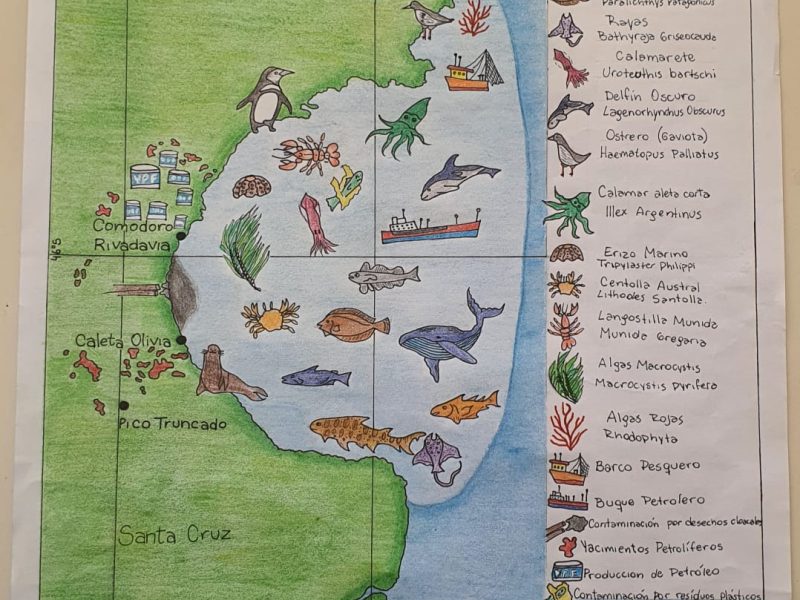 Comodoro
Rivadavia
46°S
Caleta Olivia
Pico Truncado
Santa Cruz
YPF
Paralichthys Patagonicus
Rayas
Bathyraja Griseocauda
Calamarete
Uroteothis bartschi
Delfín Oscuro
Lagenorhynchus Obscurus
Ostrero (Gaviota)
Haematopus Palliatus
Calamar aleta corta
Illex Argentinus
Erizo Marino
Tripylaster Philippi
Centolla Austral
Lithodes Santolla.
Langostilla Munida
Munida Gregaria
Algas Macrocystis
Macrocystis pyrifera
Algas Rojas
Rhodophyta
Barco Pesquero
Buque Petrolero
Contaminación por desechos cloacales
Yacimientos Petrolíferos
YPF
Produccion de Petróleo
Contaminación por residuos plásticos